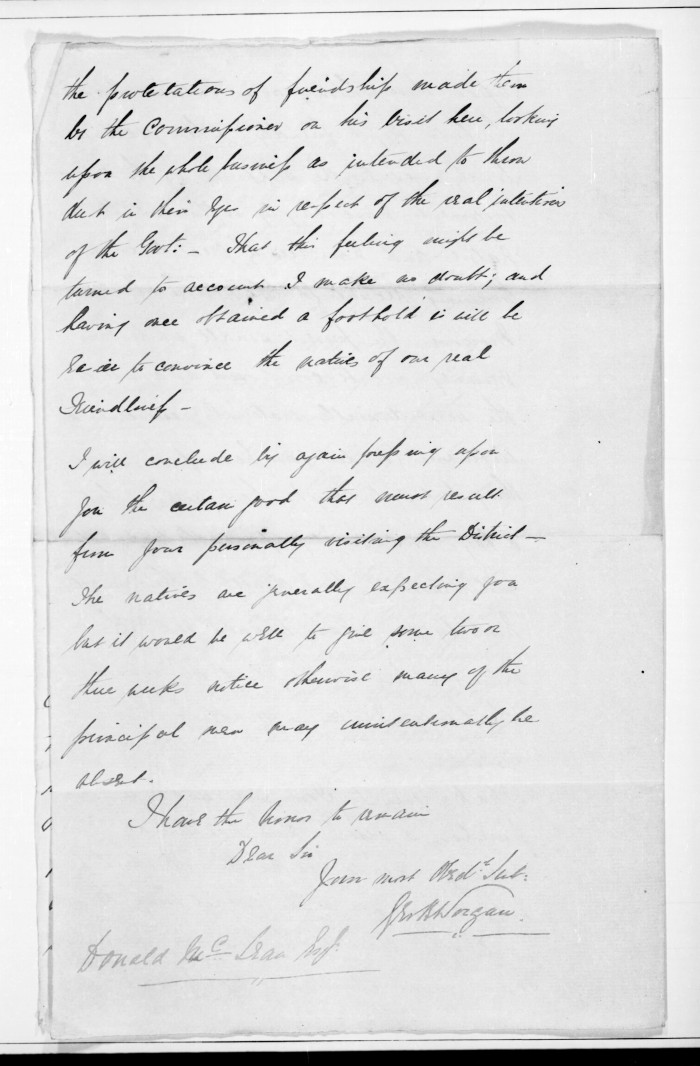 the protestations of friendship made them
by the Commissioner on his visit here, looking
upon the whole business as intended to throw
dust in their Eyes in respect of the real intention
of the Govt: - That this feeling might be
turned to account I make no doubt; and
having once obtained a foothold it will be
to convince the natives of our real
Friendliness -
I will conclude by again pressing upon
you the certain good that must result
from your personally visiting the District -
The natives are generally expecting you
but it would be well to give some two or
three weeks notice otherwise many of the
principal men may unintentionally be
absent.
I have the honor to remain
Dear Sir
Your most Obedt. Sert:
Worgan.
Donald McLean Esq.